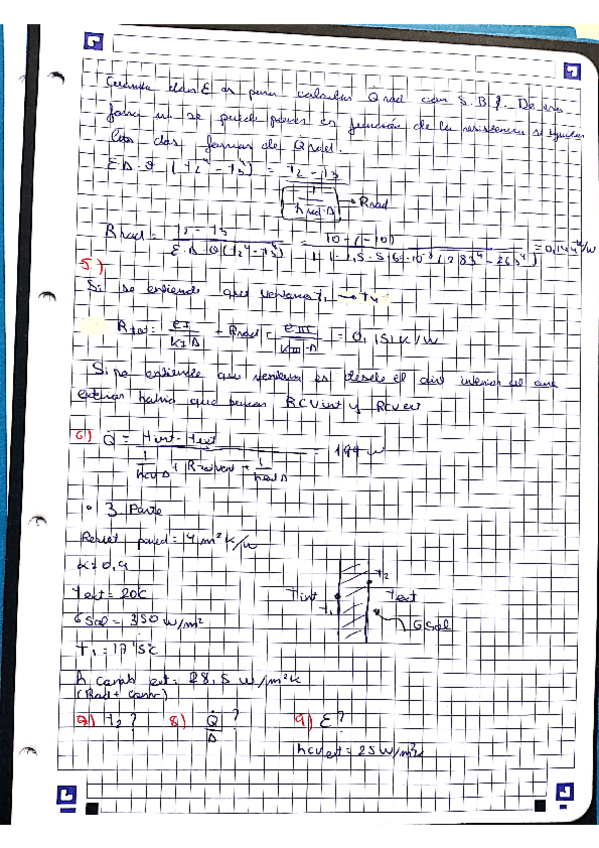 Cuando dan ε es para calcular Q̇rad con S.B.J. De esa
forma no se puede poner en función de la resistencia se igualan
las dos formas de Q̇rad.
ε·A·σ (T2⁴ - T3⁴) = T2 - T3 / (1 / hrad·A) → Rrad
Rrad = T2 - T3 / ε·A·σ(T2⁴ - T3⁴) = 10 - (-10) / (283⁴ - 263⁴) = K/W
5)
Si se entiende que ventana T1 → T4
Rtot = eI / KI·A + Rrad + eIII / KIII·A = 0,151 K/W
Si se entiende que ventana es desde el aire interior al aire
exterior habría que poner RCVint y Rcvext
6) Q̇ = Tint - Text / (1 / hcv·A + + 1 / hcv·A) = 199 W
• 3 Parte
Resist pared = 4 m²K/W
α = 0,9
Text = 20ºC
GSol = 350 W/m²
T1 = 17'5ºC
h comb ext = 28,5 W/m²K
(Rad + Conv)
Tint
T1
T2
Text
GSol
7) T2?
8) Q̇/A ?
9) ε?
hcvext = 25 W/m²K